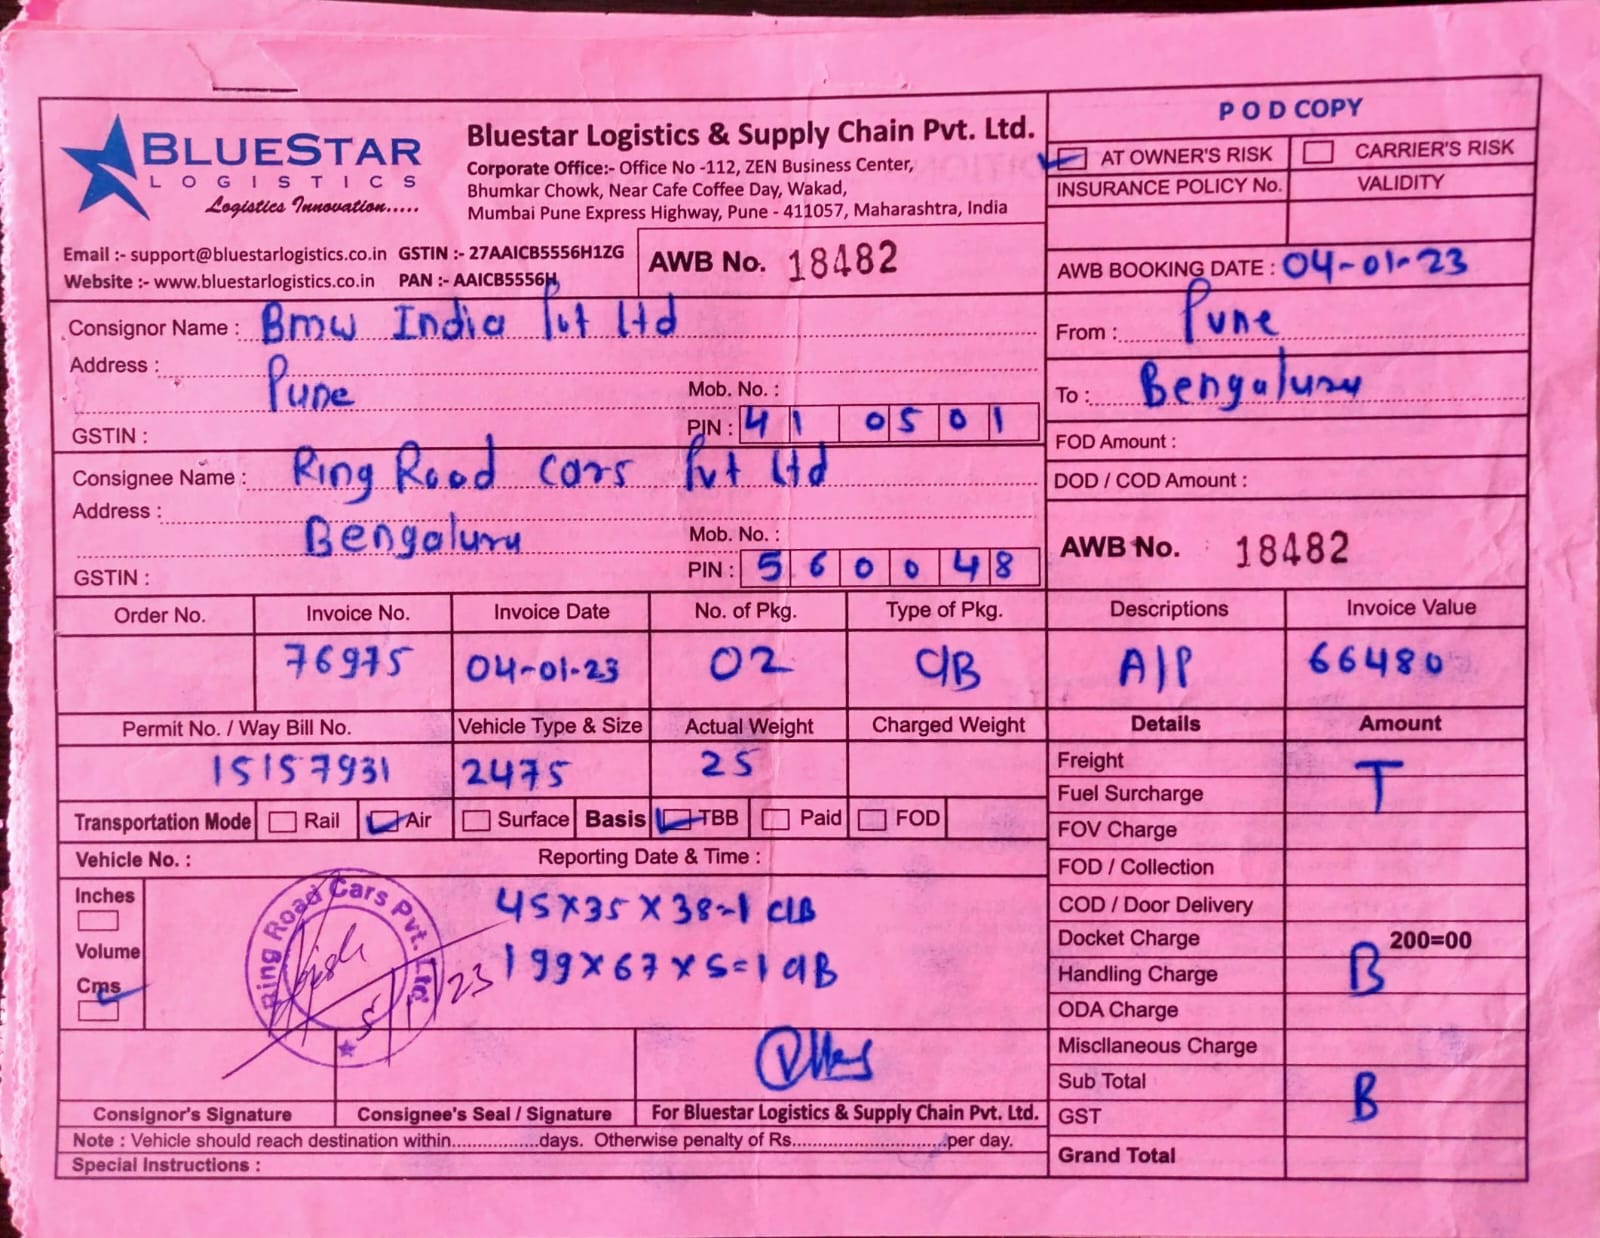 BLUESTAR
LOGISTICS
Logistics Innovation.....
Bluestar Logistics & Supply Chain Pvt. Ltd.
Corporate Office:- Office No -112, ZEN Business Center,
Bhumkar Chowk, Near Cafe Coffee Day, Wakad,
Mumbai Pune Express Highway, Pune - 411057, Maharashtra, India
Email :- support@bluestarlogistics.co.in GSTIN :- 27AAICB5556H1ZG
Website :- www.bluestarlogistics.co.in PAN :- AAICB5556H
AWB No. 18482
POD COPY
AT OWNER'S RISK CARRIER'S RISK
INSURANCE POLICY No. VALIDITY
AWB BOOKING DATE : 04-01-23
Consignor Name : Bmw India Pvt Ltd
Address :
Pune Mob. No. :
GSTIN : PIN : 41 0501
From : Pune
To : Bengaluru
FOD Amount :
DOD / COD Amount :
Consignee Name : Ring Road Cars Pvt Ltd
Address :
Bengaluru Mob. No. :
GSTIN : PIN : 560048
AWB No. 18482
Order No. Invoice No. Invoice Date No. of Pkg. Type of Pkg. Descriptions Invoice Value
76975 04-01-23 02 C/B A/P 66480
Permit No. / Way Bill No. Vehicle Type & Size Actual Weight Charged Weight Details Amount
15157931 2475 25
Transportation Mode Rail Air Surface Basis TBB Paid FOD
Vehicle No. : Reporting Date & Time :
Inches
Volume
Cms
45x35x38=1 C/B
199x67x5=1 C/B
Ring Road Cars Pvt. Ltd.
5/1/23
Freight
T
Fuel Surcharge
FOV Charge
FOD / Collection
COD / Door Delivery
Docket Charge 200=00
Handling Charge B
ODA Charge
Miscllaneous Charge
Sub Total
B
GST
Grand Total
Consignor's Signature Consignee's Seal / Signature For Bluestar Logistics & Supply Chain Pvt. Ltd.
Note : Vehicle should reach destination within...............days. Otherwise penalty of Rs...........................per day.
Special Instructions :